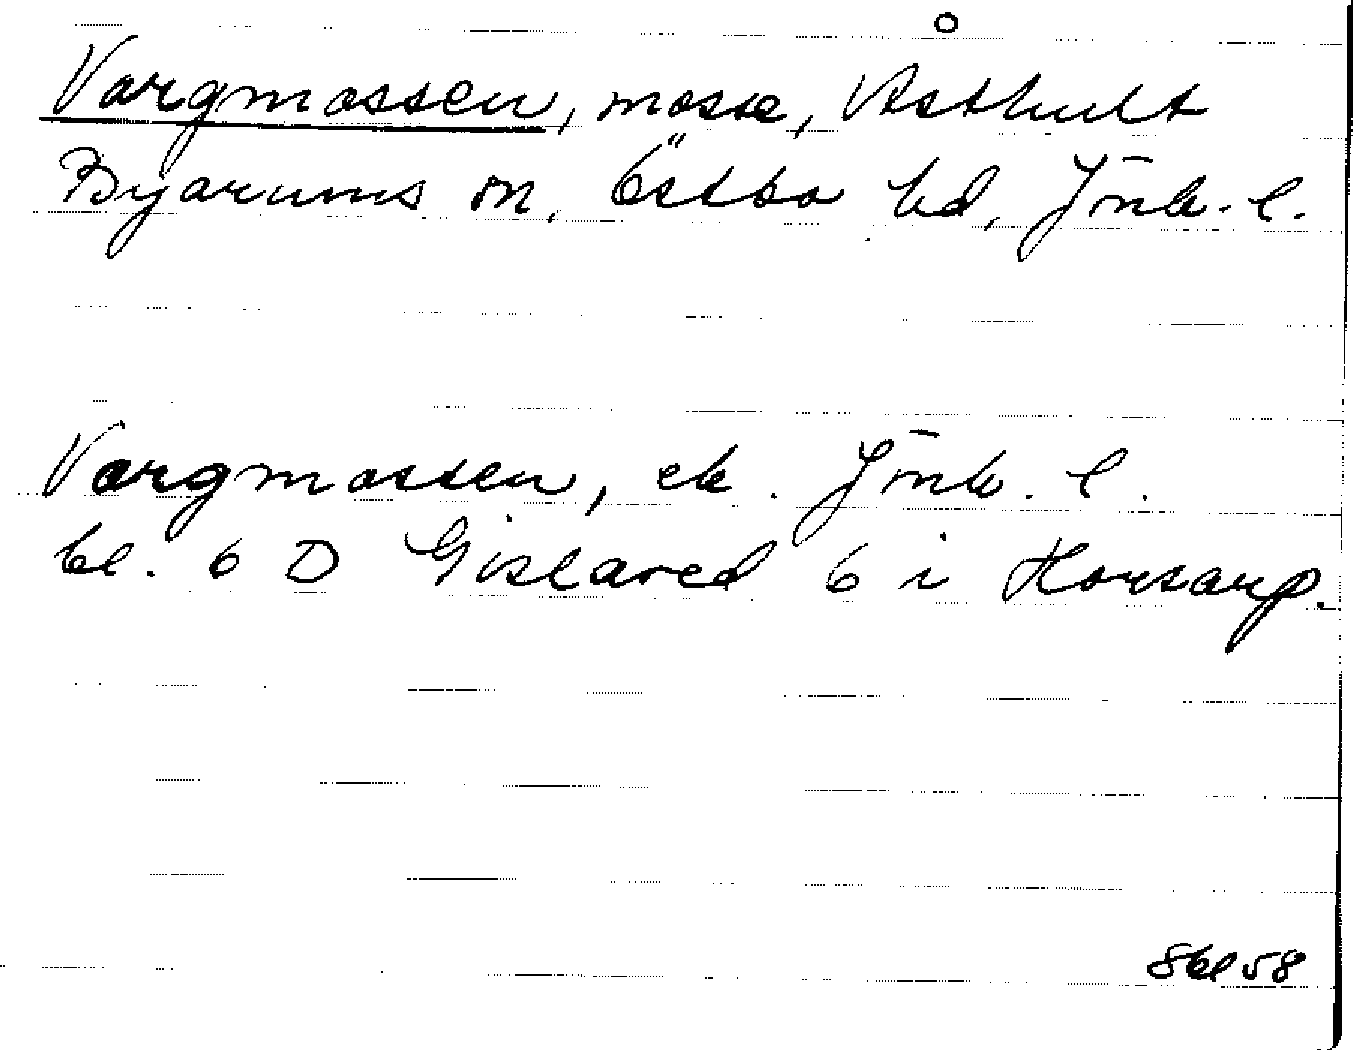 Vargmossen, mosse, Åsthult
Byarums sn, Östbo hd, Jönk. l.
Vargmossen, ek. Jönk. l.
bl. 6 D Gislaved 6 i Horsarp.
Skl 58